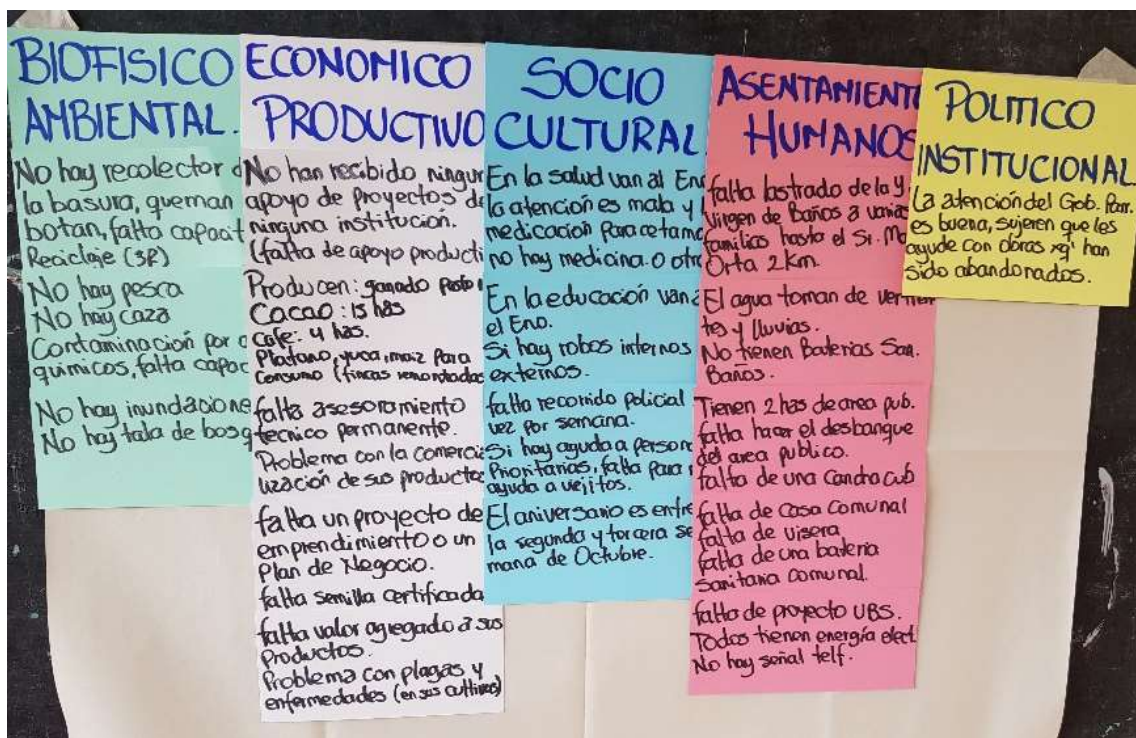 BIOFISICO
AMBIENTAL.
No hay recolector d
la basura, queman
botan, falta capacit
Reciclaje (3R)
No hay pesca
No hay caza
Contaminación por
químicos, falta capac
No hay inundacione
No hay tala de bosq
ECONOMICO
PRODUCTIVO
No han recibido ningun
apoyo de proyectos de
ninguna institución.
(falta de apoyo producti
Producen: ganado Pasto
Cacao: 15 has
Cafe: 4 has.
Platano, yuca, maiz Para
Consumo (fincas remontadas
falta asesoramiento
tecnico permanente.
Problema con la comercia
lización de sus productos
falta un proyecto de
emprendimiento o un
Plan de Negocio.
falta semilla certificada
falta valor agregado a sus
Productos.
Problema con plagas y
enfermedades (en sus cultivos)
SOCIO
CULTURAL
En la salud van al Eno
la atención es mala y
medicación Paracetamo
no hay medicina. o otro
En la educación van a
el Eno.
Si hay robos internos
externos.
falta recorrido policial
vez por semana.
Si hay ayuda a person
Prioritarias, falta para
ayuda a vejitos.
El aniversario es entre
la segunda y tercera se
mana de Octubre.
ASENTAMIENTO
HUMANOS
falta lastrado de la Y.
Virgen de Baños a varias
familias hasta el Sr. Mo
Orta 2 Km.
El agua toman de vertien
tes y lluvias.
No tienen Baterias San.
Baños.
Tienen 2 has de area pub.
falta hacer el desbanque
del area publico.
falta de una Cancha cub
falta de Casa Comunal
falta de visera
falta de una bateria
Sanitaria Comunal.
falta de proyecto UBS.
Todos tienen energía elect.
No hay señal telf.
POLITICO
INSTITUCIONAL
La atención del Gob. Parr.
es buena, sujeren que les
ayude con obras xq' han
sido abandonados.